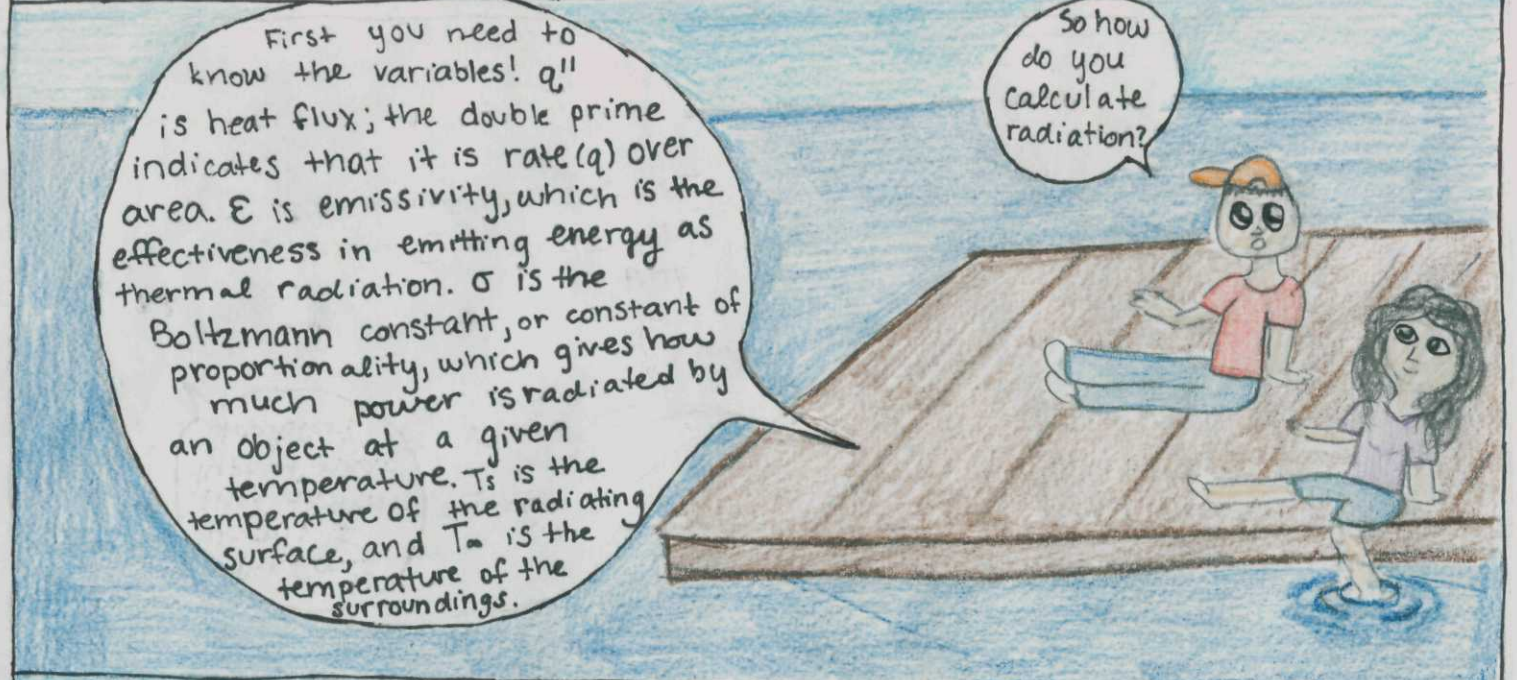 So how
do you
calculate
radiation?
First you need to
know the variables! q"
is heat flux; the double prime
indicates that it is rate (q) over
area. ε is emissivity, which is the
effectiveness in emitting energy as
thermal radiation. σ is the
Boltzmann constant, or constant of
proportionality, which gives how
much power is radiated by
an object at a given
temperature. Ts is the
temperature of the radiating
surface, and T∞ is the
temperature of the
surroundings.